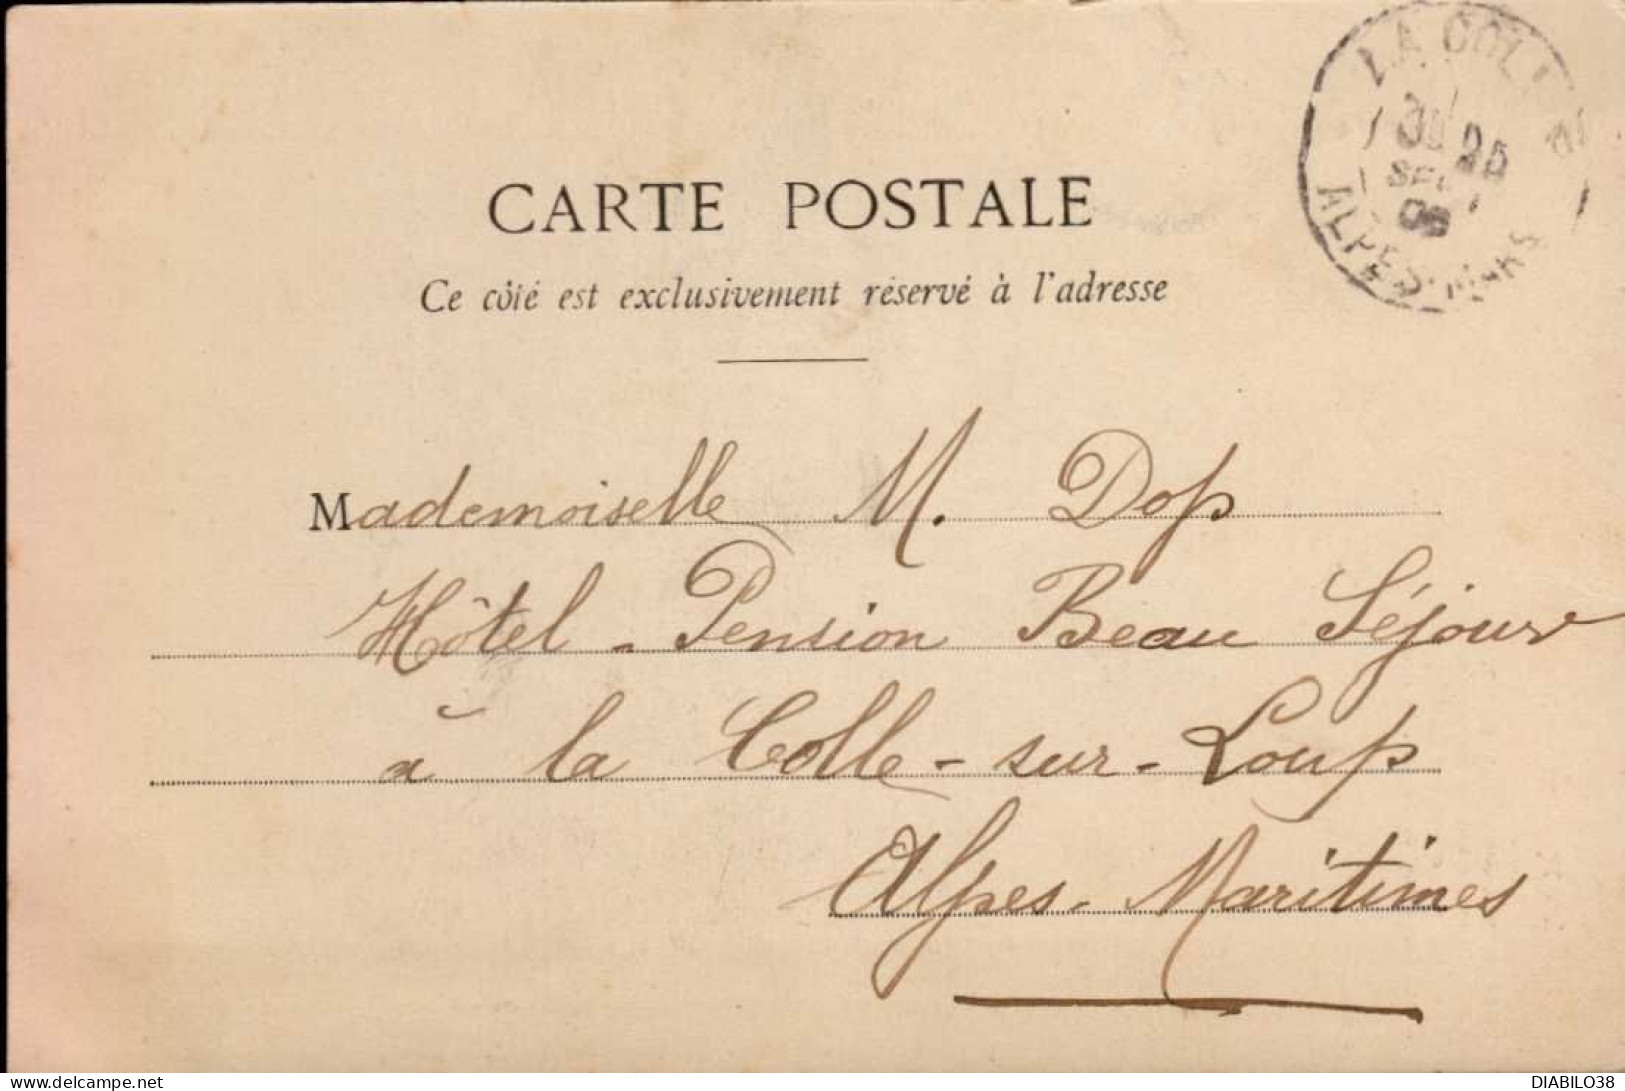 CARTE POSTALE
Ce côté est exclusivement réservé à l'adresse
LA COLLE
25
SEPT
ALPES-MARS
Mademoiselle M. Dop
Hôtel - Pension Beau Séjour
à la Colle-sur-Loup
Alpes-Maritimes
www.delcampe.net
DIABILO38